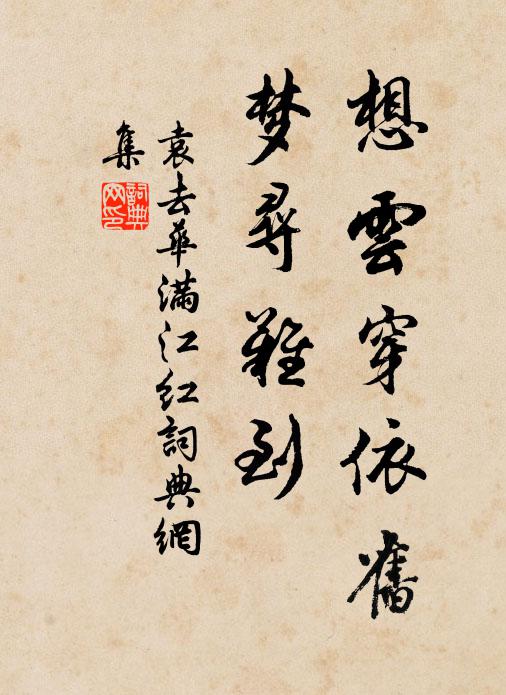 想雲穿依舊
梦尋難到
袁去華滿江紅詞典網
集
詞典
网印